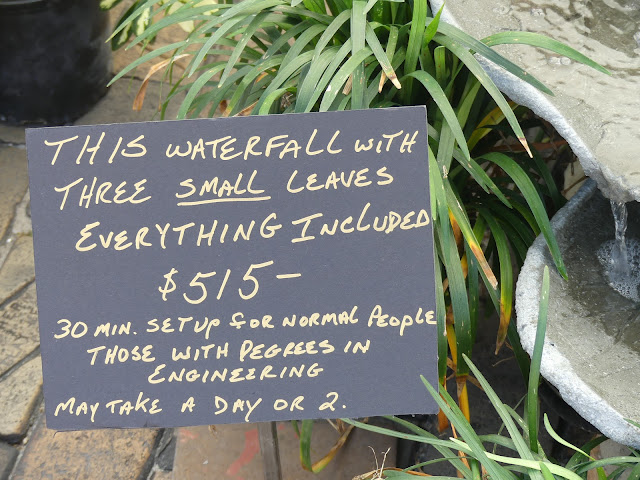 THIS WATERFALL WITH
THREE SMALL LEAVES
EVERYTHING INCLUDED
$515-
30 MIN. SETUP FOR NORMAL PEOPLE
THOSE WITH DEGREES IN
ENGINEERING
MAY TAKE A DAY OR 2.